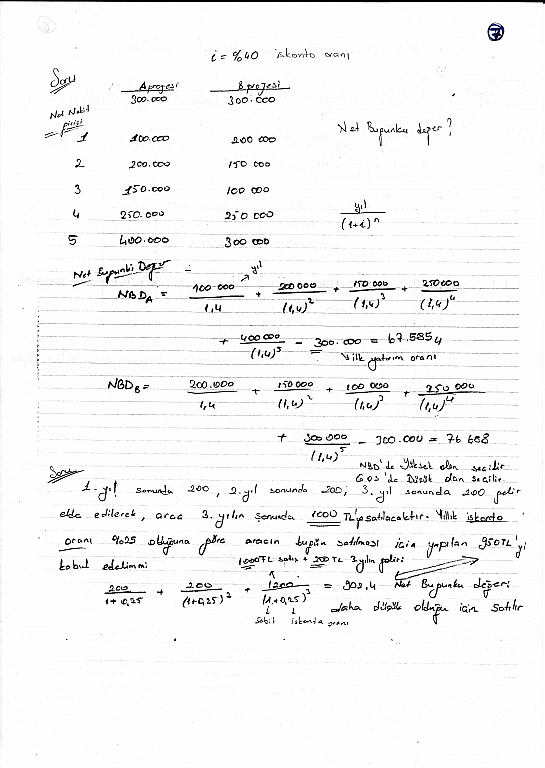 i = %40 iskonto oranı
Soru
A projesi B projesi
300.000 300.000
Net Nakit
girişi
1 100.000 200 000
Net Bugünkü değer?
2 200.000 150 000
3 150.000 100 000
4 250.000 250 000
yıl
(1+i)ⁿ
5 400.000 300 000
Net Bugünkü Değer
yıl
NBD_A = 100.000/1,4 + 200000/(1,4)² + 150 000/(1,4)³ + 250000/(1,4)⁴
+ 400000/(1,4)⁵ - 300.000 = 67.5854
ilk yatırım oranı
NBD_B = 200.000/1,4 + 150000/(1,4)² + 100 000/(1,4)³ + 250 000/(1,4)⁴
+ 300000/(1,4)⁵ - 300.000 = 76 688
NBD'de Yüksek olan seçilir
G.O.S'de Düşük olan seçilir
Soru
1. yıl sonunda 200, 2. yıl sonunda 200, 3. yıl sonunda 200 gelir
elde edilerek, araç 3. yılın sonunda 1000 TL'ye satılacaktır. Yıllık iskonto
oranı %25 olduğuna göre aracın bugün satılması için yapılan 950TL'yi
kabul edelimmi
1000TL satış + 200 TL 3 yılın geliri
200/1+0,25 + 200/(1+0,25)² + 1200/(1+0,25)³ = 902,4 Net Bugünkü değeri
daha düşük olduğu için satılır
sabit iskonto oranı